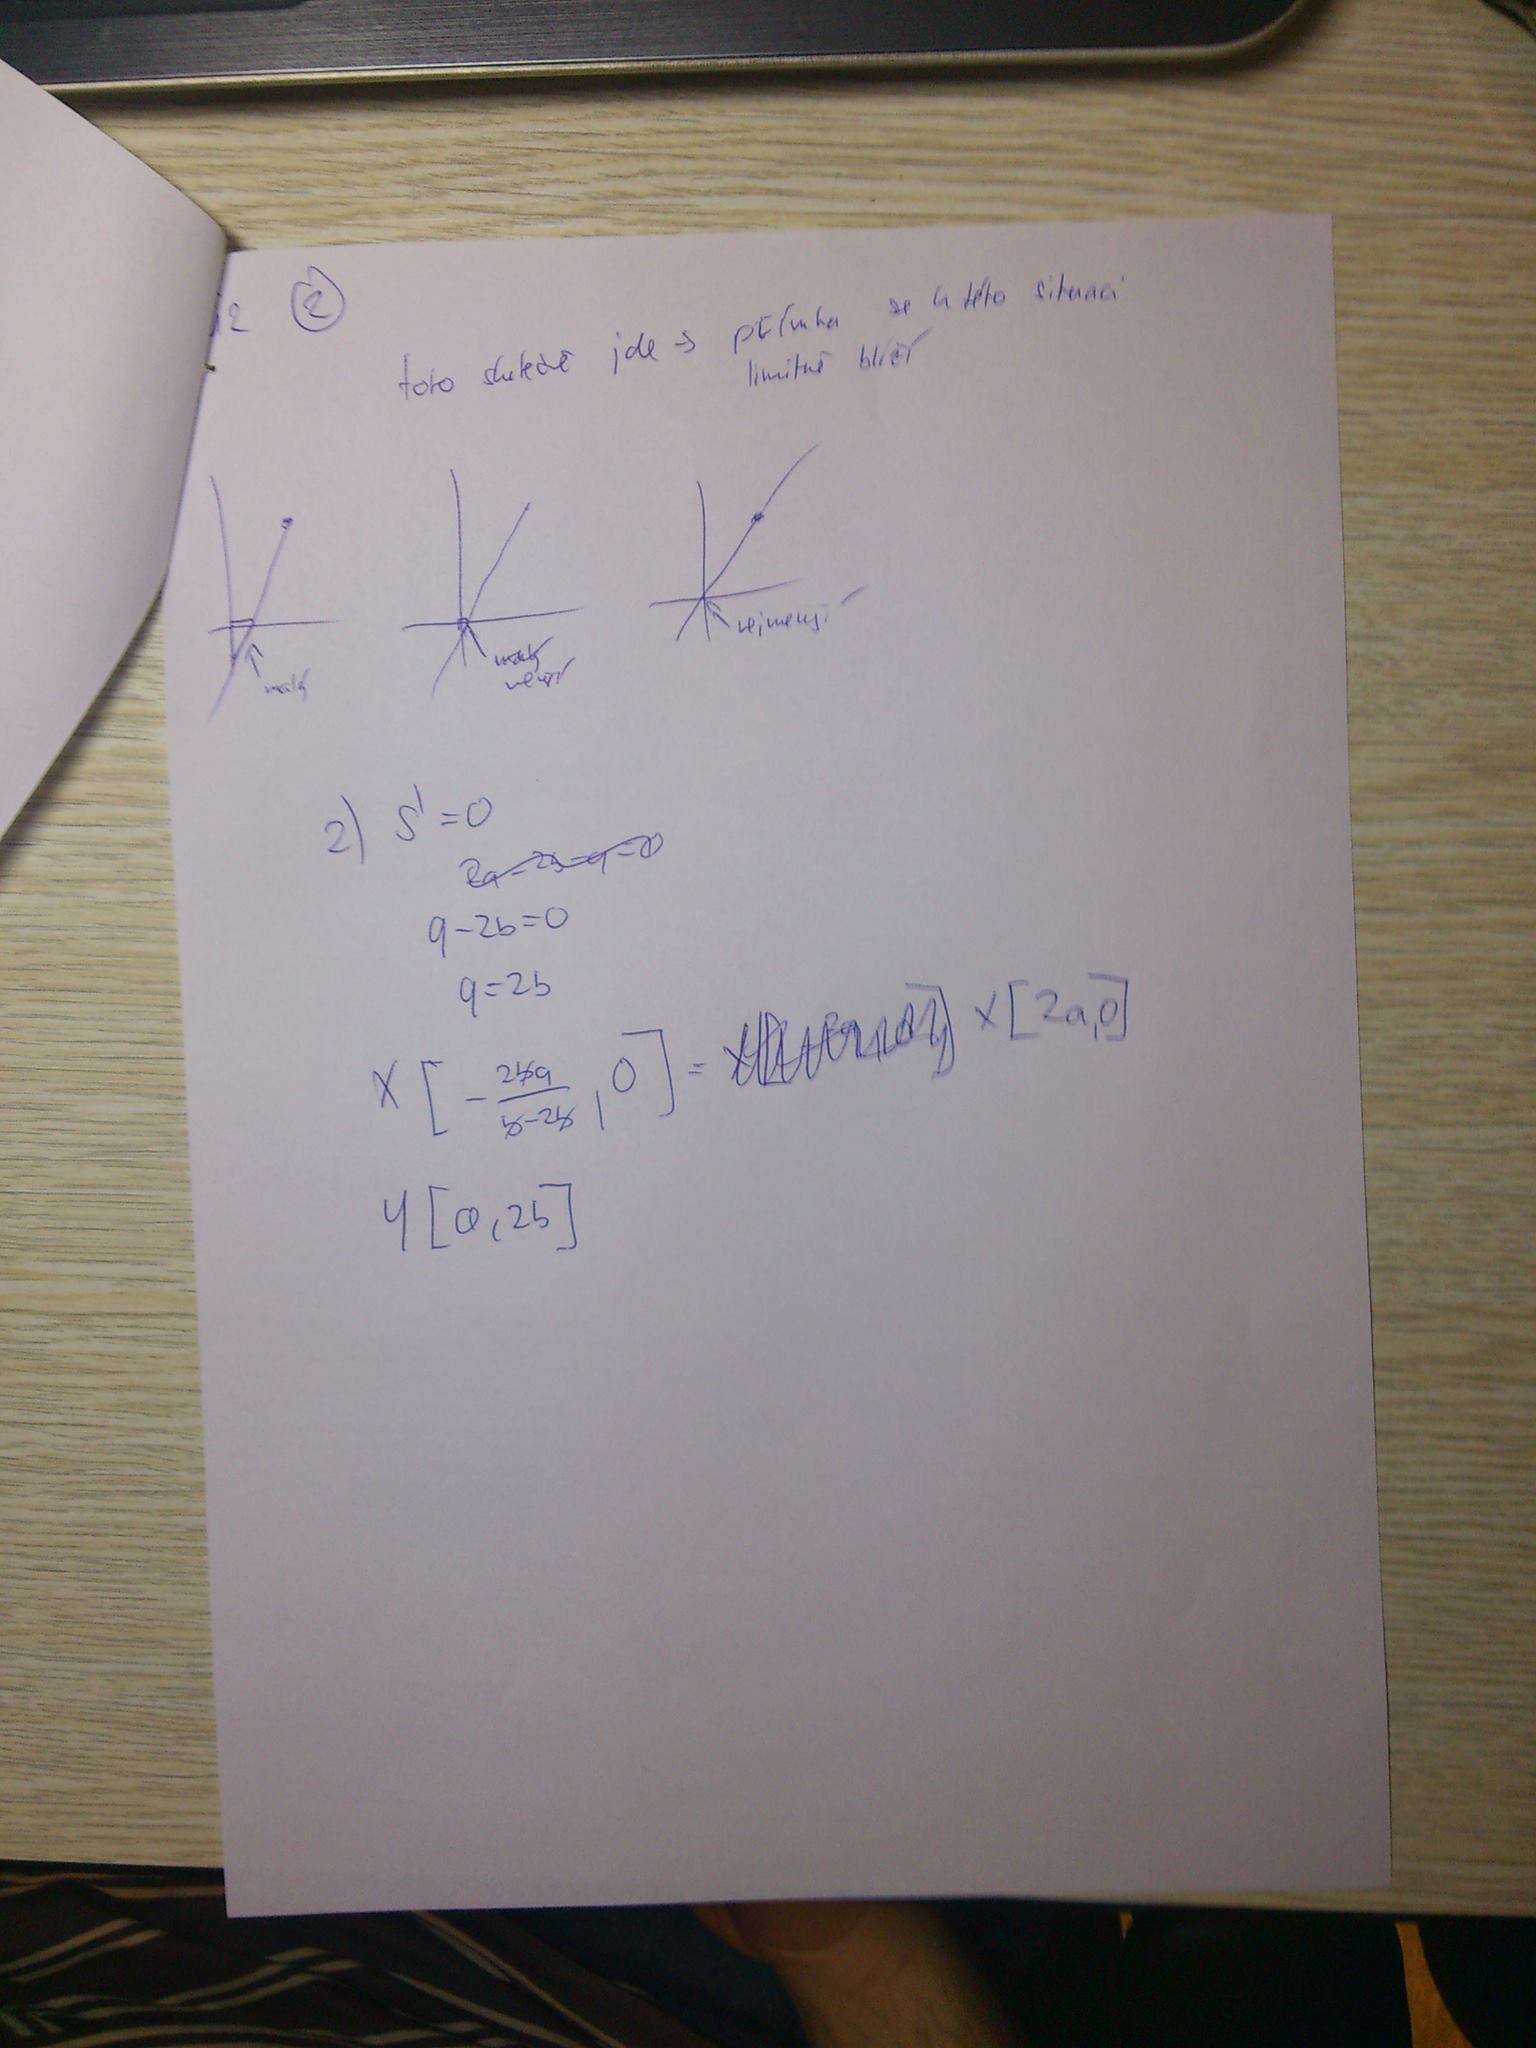 12 ②
toto skutečně jde → přímka se k této situaci
limitně blíží
malý
malý
menší
nejmenší
2) S' = 0
q - 2b = 0
q = 2b
X [ - 2ba / b-2b , 0 ] = X [2a, 0]
Y [0, 2b]